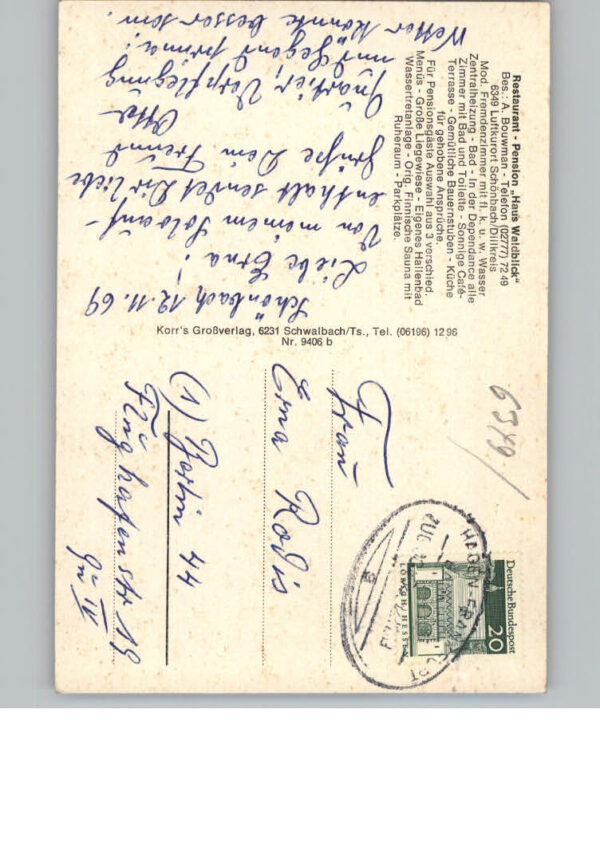 Restaurant - Pension „Haus Waldblick"
Bes.: A. Bouwman - Telefon (02777) 72 49
6349 Luftkurort Schönbach/Dillkreis
Mod. Fremdenzimmer mit fl. k. u. w. Wasser
Zentralheizung - Bad - In der Dependance alle
Zimmer mit Bad und Toilette - Sonnige Café-
Terrasse - Gemütliche Bauernstuben - Küche
für gehobene Ansprüche.
Für Pensionsgäste Auswahl aus 3 verschied.
Menüs - Große Liegewiese - Eigenes Hallenbad
Wassertretanlage - Orig. Finnische Sauna mit
Ruheraum - Parkplätze.
Schönbach, 12.11.69
Liebe Erna!
Von meinem Soloauf-
enthalt sendet Dir liebe
Grüße Dein Freund
Otto
Quartier, Verpflegung
und Gegend prima!
Wetter könnte besser sein.
Korr's Großverlag, 6231 Schwalbach/Ts., Tel. (06196) 12 96
Nr. 9406 b
6349/
Deutsche Bundespost
20
LORSCH/HESSEN
HAGEN - FRANKFURT
ZUG
Frau
Erna Rodis
(1) Berlin 44
Flughafenstr 19
IV